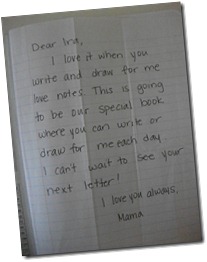 Dear Ina,
I love it when you
write and draw for me
love notes. This is going
to be our special book
where you can write or
draw for me each day.
I can't wait to see your
next letter!
I love you always,
Mama